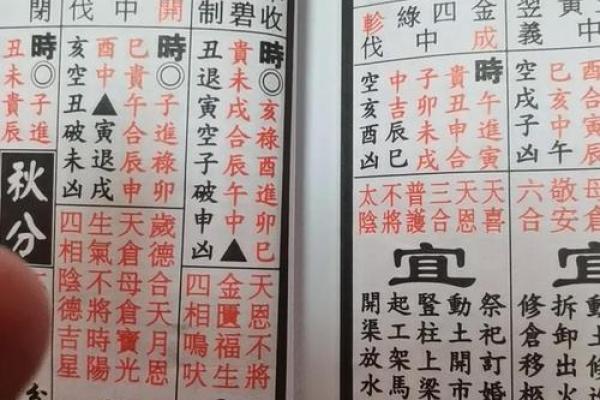 翌義
敬安
巳亥中午
空戌子凶
六合
宜
拆卸出火
修倉移柩
金成
四
綠中
軫伐
時午進寅
貴丑申合
子卯未戌
中吉辰巳
空亥酉凶
天喜
天恩
三合
普護
不將
太陰
宜
祭祀訂婚
動土開市
豎柱上梁
起工架馬
開渠放水
收
碧
制
時◯亥祿酉進卯巳
貴未戌合辰午中▲
丑退寅空子破申凶
天恩不將
金匱福生
四相鳴吠
開
中
伐
時◯子進祿卯
巳貴午合辰申
酉中▲寅退戌
亥空丑破未凶
歲德合天月恩
天倉母倉寶光
生氣不將時陽
四相陰德吉星
閉
時◯子進
丑未貴辰
秋分